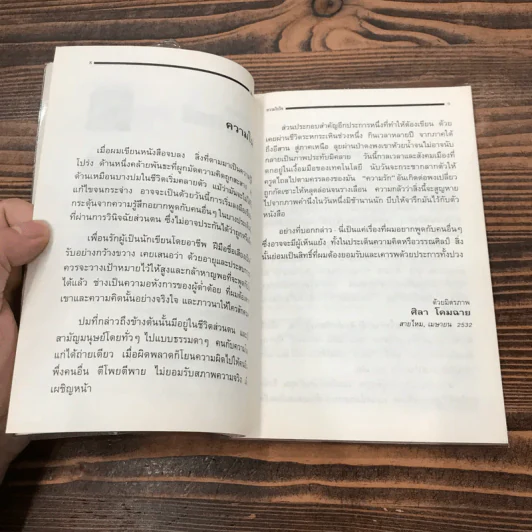 ความใน
เมื่อผมเขียนหนังสือจบลง สิ่งที่ตามมาเป็นความ
โปร่ง ด้านหนึ่งคล้ายพันธะที่ผูกมัดความคิดถูก
ด้านเหมือนบางปมในชีวิตเริ่มคลายตัว แม้ว่า
แก้ไขจนกระจ่าง อาจจะเป็นด้วยวันนี้การเริ่ม
กระตุ้นจากความรู้สึกอยากพูดกับคนอื่นๆ ใน
ที่ผ่านการวินิจฉัยส่วนตน ซึ่งไม่อาจประกันได้ว่าถูก
เพื่อนรักผู้เป็นนักเขียนโดยอาชีพ ฝีมือชื่อเสียง
รับอย่างกว้างขวาง เคยเสนอว่า ด้วยอายุและประสบ
ควรจะวางเป้าหมายไว้ให้สูงและกล้าหาญพอที่จะพูด
ได้แล้ว ช่างเป็นความอหังการของผู้ต่ำต้อย ที่ผม
เขาและความคิดนั้นอย่างจริงใจ และภาวนาให้ใคร
ปมที่กล่าวถึงข้างต้นนั้นมีอยู่ในชีวิตส่วนตน และ
สามัญมนุษย์โดยทั่วๆ ไปแบบธรรมดาๆ คนกับความ
แก่ได้ถ่ายเดียว เมื่อผิดพลาดก็โยนความผิดไปให้
พึ่งคนอื่น ตีโพยตีพาย ไม่ยอมรับสภาพความจริง
เผชิญหน้า
ส่วนประกอบสำคัญอีกประการหนึ่งที่ทำให้ต้องเขียน ด้วย
เคยผ่านชีวิตระหกระเหินช่วงหนึ่ง กินเวลาหลายปี จากภาคใต้
ถึงอีสาน สู่ภาคเหนือ ลุยผ่านป่าดงพงเขาห้วยน้ำจนไม่อาจนับ
กลายเป็นภาพประทับมิคลาย วันนี้กาลเวลาและสังคมเมืองที่
ตกอยู่ในเงื้อมมือของเทคโนโลยี นับวันจะกระชากลากกลัวให้
ครรลองของมัน "ความรัก" อันเกิดต่อพงเปลี่ยว
ถูกกัดเซาะให้หลุดล่อนจรางเลือน ความกลัวว่าสิ่งนี้จะสูญหาย
ไปจากภาพคำนึงในวันหนึ่งมีช้านานนัก บีบให้จำรึกมันไว้กับตัว
หนังสือ
อย่างที่บอกกล่าว นี่เป็นแค่เรื่องที่ผมอยากพูดกับคนอื่นๆ
ซึ่งอาจจะมีผู้เห็นแย้ง ทั้งในประเด็นความคิดหรือวรรณศิลป์ สิ่ง
นั้นย่อมเป็นสิทธิ์ที่ผมต้องยอมรับและเคารพด้วยประการทั้งปวง
ด้วยมิตรภาพ
ศิลา โคมฉาย
สายไหม, เมษายน 2532